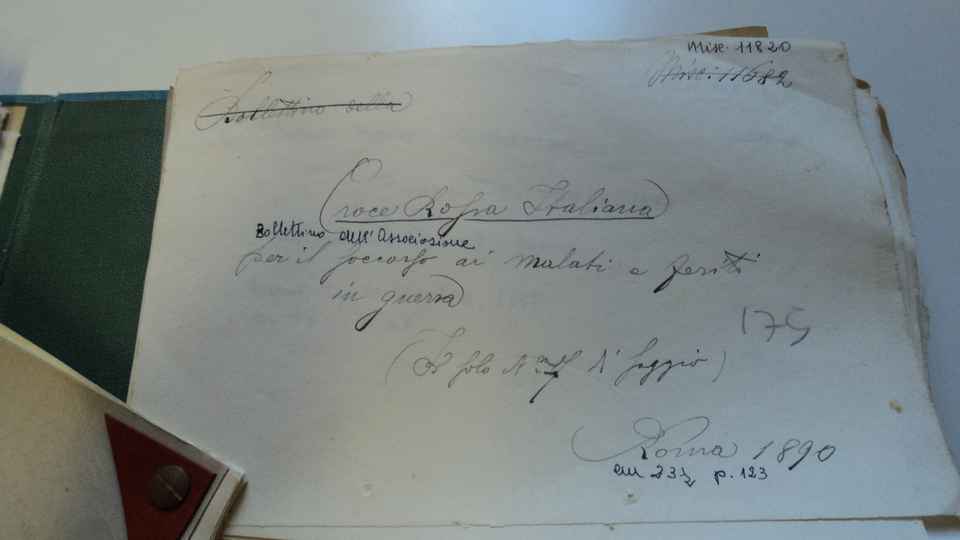 Misc. 11820
Misc. 11682
Bollettino della
Croce Rossa Italiana
Bollettino dell'Associazione
per il soccorso ai malati e feriti
in guerra
(Il solo N. 7 di saggio)
175
Roma 1890
cm 23½ p. 123